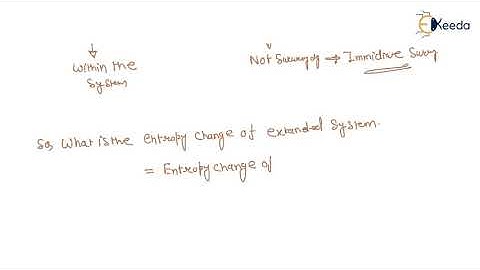 EKeeda
within the
system
Not Surrounding → Immidiate Surr
So, What is the entropy change of extended system.
= Entropy change of